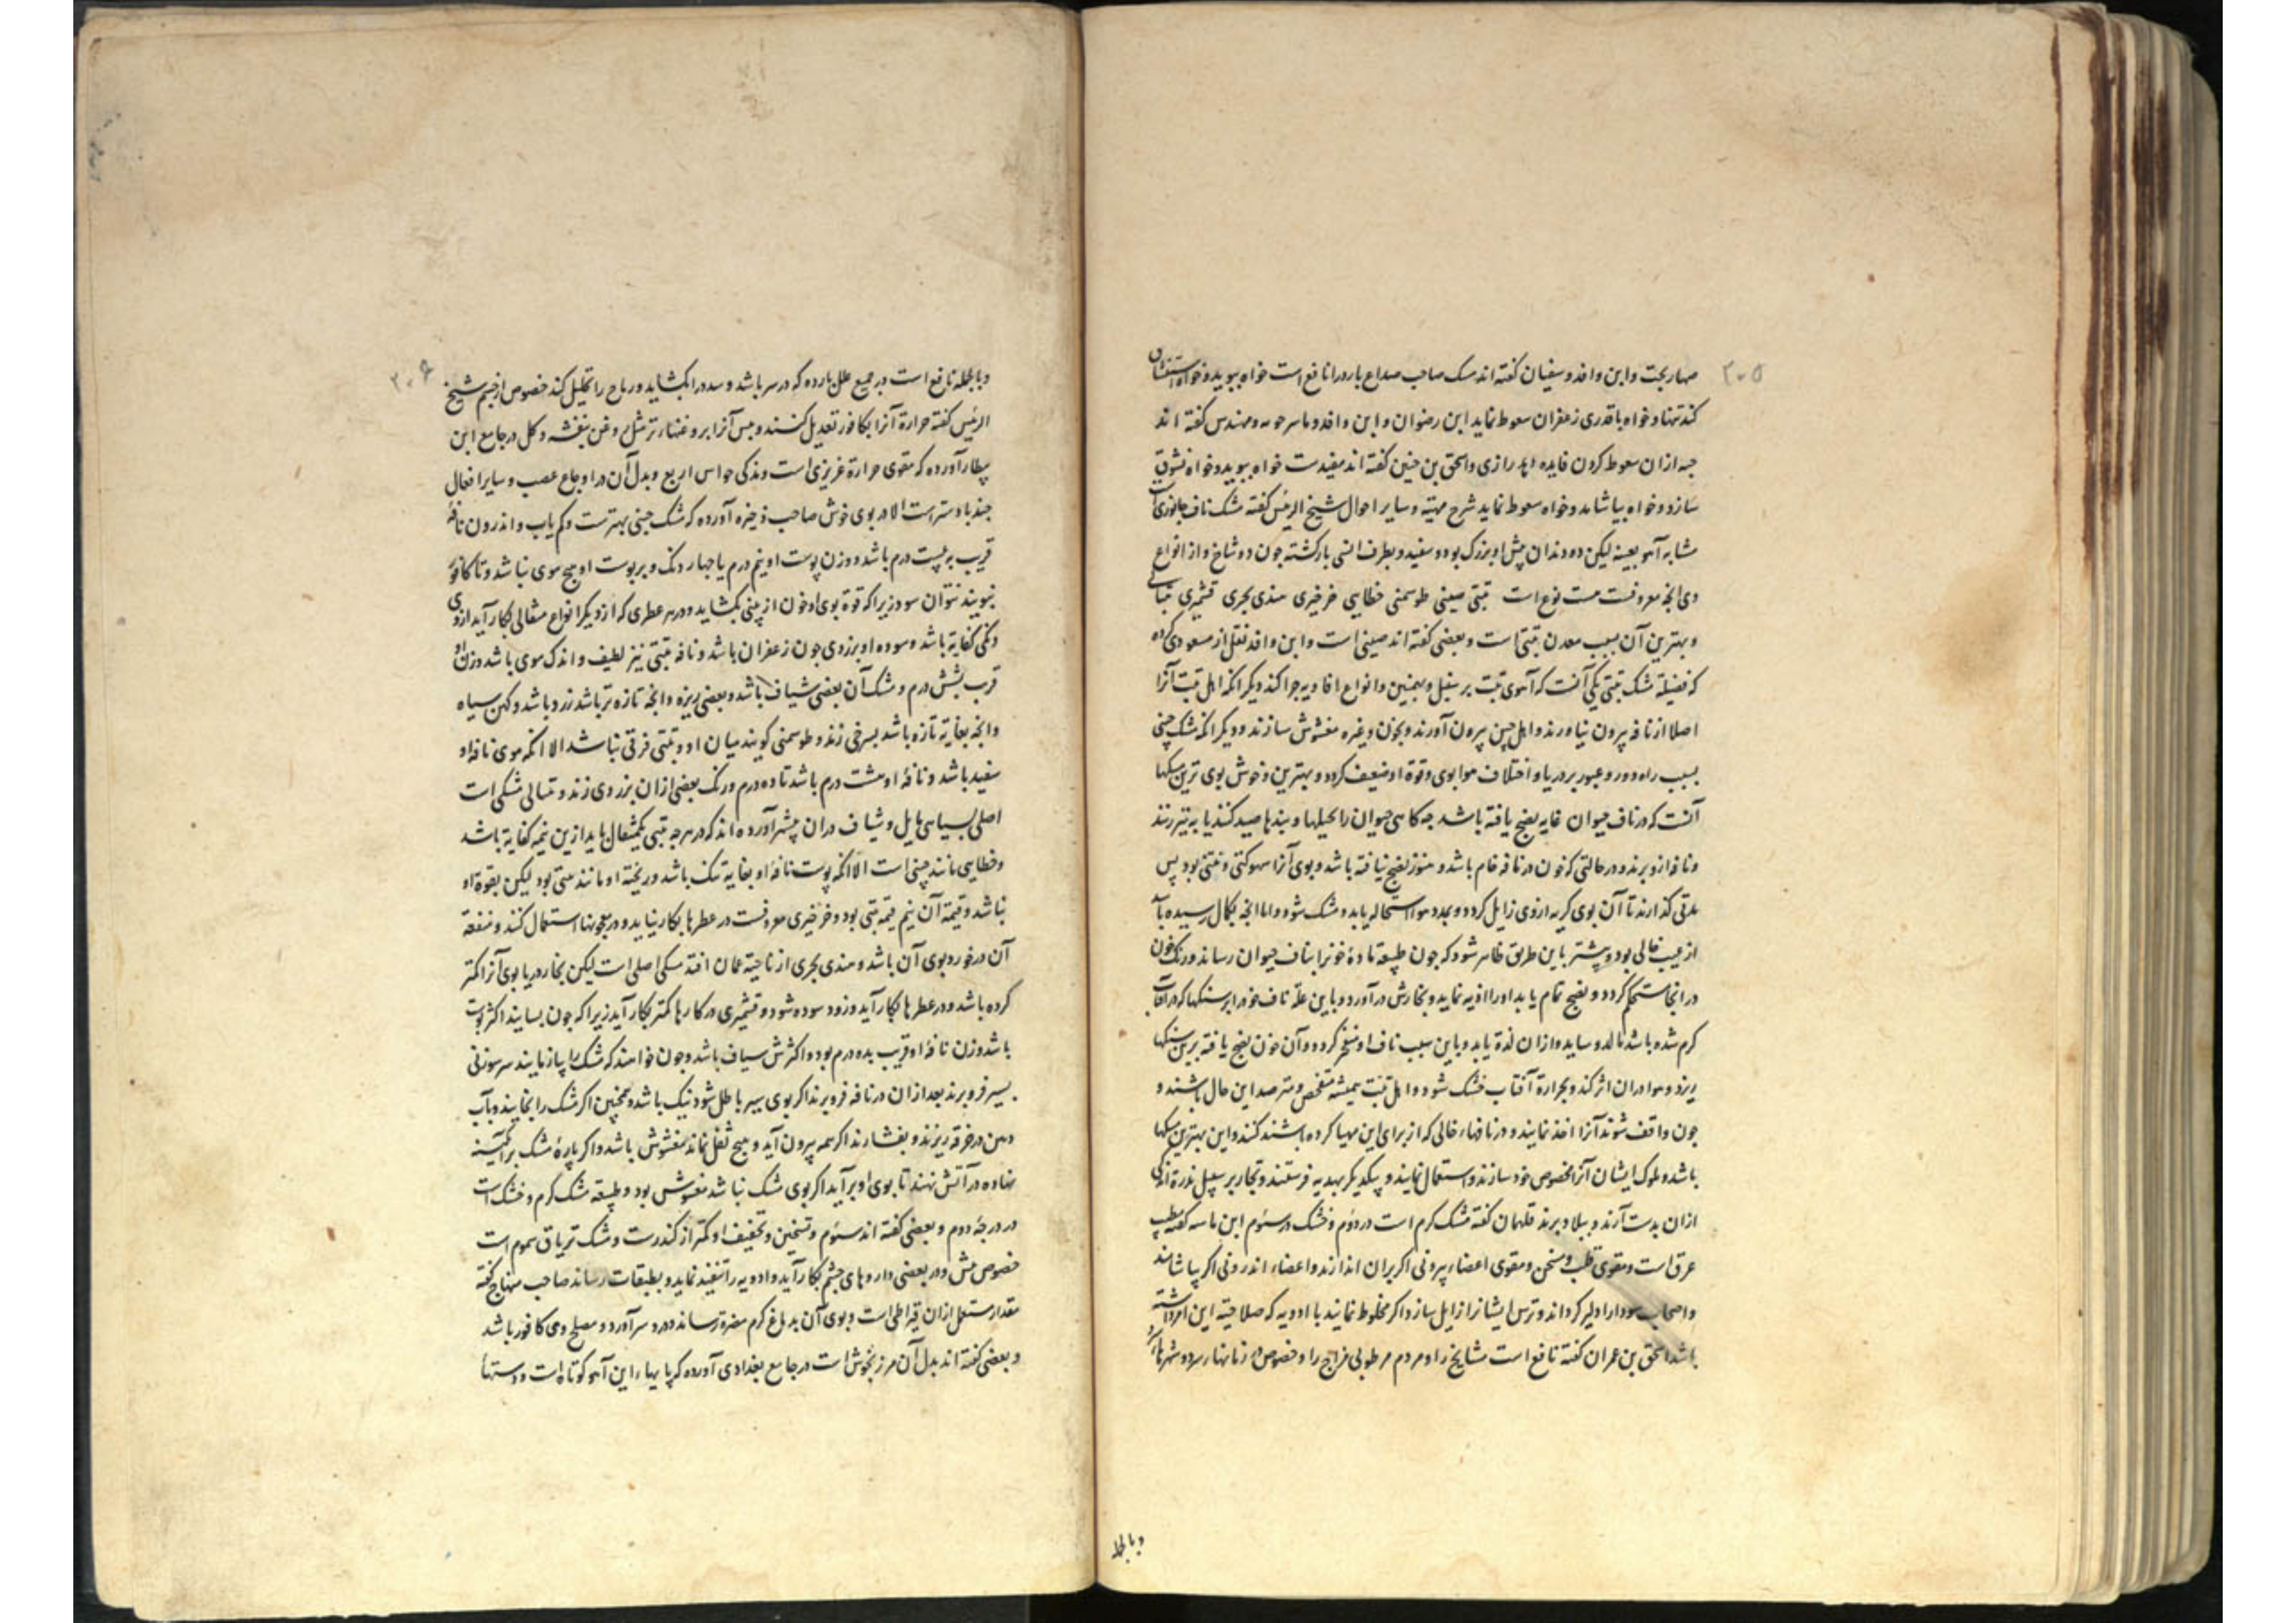 ۲۰۵
صهاربخت و ابن وافد و سفیان کفته اند مسک صاحب صداع بارد را نافع است خواه ببوید و خواه استنشاق
کند تنها و خواه باقدری زعفران سعوط نماید ابن رضوان و ابن وافد و ماسرحویه و مهندس کفته اند
حبه ازان سعوط کردن فایده دهد رازی و اسحق بن حنین کفته اند مفیدست خواه ببوید و خواه نشوق
سازد و خواه بیاشامد و خواه سعوط نماید شرح مهیته و سایر احوال شیخ الرئیس کفته مشک ناف جانوری است
مشابه آهو بعینه لیکن دو دندان پیش او بزرک بود و سفید و بطرف انسی بازکشته چون دو شاخ و از انواع
وی انچه معروفست هشت نوع است تبتی صینی طوسمتی خطایی خرخیری هندی بحری قشمیری تتالی
و بهترین آن بسبب معدن تبتی است و بعضی کفته اند صینی است و ابن وافد نقل از مسعودی کرده
که فضیلة مشک تبتی یکی آنست که آهوی تبت بر سنبل و بهمنین و انواع افاویه چرا کند دیکر انکه اهل تبت آنرا
اصلا از نافه بیرون نیاورند و اهل چین بیرون آورند و بخون و غیره مغشوش سازند و دیکر انکه مشک چینی
بسبب راه دور و عبور بر دریا و اختلاف هوا بوی و قوة او ضعیف کردد و بهترین و خوش بوی ترین مسکها
آنست که در ناف حیوان غایه نضج یافته باشد چه کاهی حیوان را بحیلها و بندها صید کنند یا به تیر زنند
و نافه ازو برند و در حالتی که خون در نافه خام باشد و هنوز نضج نیافته باشد و بوی آنرا سهوکتی و نتنی بود پس
مدتی کذارند تا آن بوی کریه ازوی زایل کردد و بمدد هوا استحاله یابد و مشک شود و اما انچه بکمال رسیده باشد
از عیب خالی بود و بیشتر باین طریق ظاهر شود که چون طبیعة مادهٔ خونرا بناف حیوان رساند و رنک خون
در انجا مستحکم کردد و نضج تمام یابد او را اذیه نماید و بخارش در آورد و باین علّة ناف خود را بر سنکها که در آفتاب
کرم شده باشد مالد و ساید و ازان لذة یابد و باین سبب ناف او منفجر کردد و آن خون نضج یافته برین سنکها
ریزد و هوا دران اثر کند و بحرارة آفتاب خشک شود و اهل تبت همیشه متفحص و مترصد این حال باشند و
چون واقف شوند آنرا اخذ نمایند و در نافهاء خالی که از برای این مهیا کرده باشند کنند و این بهترین مسکها
باشد و ملوک ایشان آنرا مخصوص خود سازند و استعمال نمایند و بیکدیکر بهدیه فرستند و تجار بر سبیل ندرة اندکی
ازان بدست آرند و ببلاد برند قلهمان کفته مشک کرم است در دوّم و خشک در سئوم ابن ماسه کفته مطیب
عرق است و مقوی قلب و مسخن و مقوی اعضاء بیرونی اکر بران اندازند و اعضاء اندرونی اکر بیاشامند
و اصحاب سودا را دلیر کرداند و ترس ایشانرا زایل سازد اکر مخلوط نمایند با ادویه که صلاحیته این امر داشته
باشد اسحق بن عمران کفته نافع است مشایخ را و مردم مرطوبی مزاج را و خصوص در زمانها سرد و شهرها سرد
و بالجمله
۲۰۶
و بالجمله نافع است در جمیع علل بارده که در سر باشد و سدد را بکشاید و ریاح را تحلیل کند خصوص از چشم شیخ
الرئیس کفته حرارة آنرا بکافور تعدیل کنند و یبس آنرا بروغنهاء تر مثل روغن بنفشه و کل در جامع ابن
بیطار آورده که مقوی حرارة غریزی است و مذکی حواس اربع و بدل آن در اوجاع عصب و سایر افعال
جندبادستر است الا در بوی خوش صاحب ذخیره آورده که مشک چینی بهترست و کم یاب و اندرون نافهٔ
قریب به بیست درم باشد و وزن پوست او نیم درم یا چهار دنک و بر پوست او هیچ موی نباشد و تا کافور
نبویند نتوان سود زیرا که قوة بوی او خون از بینی بکشاید و در هر عطری که از دیکر انواع مثقالی بکار آید ازوی
دنکی کفایه باشد و سوده او بزردی چون زعفران باشد و نافه تبتی نیز لطیف و اندک موی باشد و زن او
قریب بشش درم و مشک آن بعضی شیاف باشد و بعضی ریزه و انچه تازه تر باشد زرد باشد و کهن سیاه
و انچه بغایه تازه باشد بسرخی زند و طوسمتی کویند میان او و تبتی فرقی نباشد الا انکه موی نافه او
سفید باشد و نافهٔ او هشت درم باشد تا ده درم و رنک بعضی ازان بزردی زند و تتالی مشکی است
اصلی بسیاهی مایل و شیاف دران بیشتر آورده اند که در هرچه تبتی یکمثقال باید ازین نیمه کفایه باشد
و خطایی مانند چینی است الا انکه پوست نافهٔ او بغایه تنک باشد و ریخته او مانند تبتی بود لیکن بقوة او
نباشد و قیمة آن نیم قیمة تبتی بود و خرخیری معروفست در عطرها بکار نیاید و در معجونها استعمال کنند و منفعة
آن در خورد بوی آن باشد و هندی بحری از ناحیة عمان افتد مسکی اصلی است لیکن بخار دریا بوی آنرا کمتر
کرده باشد و در عطرها بکار آید و زود سوده شود و قشمیری در کارها کمتر بکار آید زیرا که چون بسایند اکثر پوست
باشد وزن نافهٔ او قریب بده درم بود و اکثرش سیاف باشد و چون خواهند که مشک را بیازمایند سر سوزنی
بسیر فرو برند بعد ازان در نافه فرو برند اکر بوی سیر باطل شود نیک باشد و همچنین اکر مشک را بخایند و بآب
دهن در خرقه ریزند و بفشارند اکر همه بیرون آید و هیچ ثفل نماند مغشوش باشد و اکر پارهٔ مشک بر آکینه
نهاده در آتش نهند تا بوی او برآید اکر بوی مشک نباشد مغشوش بود و طبیعة مشک کرم و خشک است
در درجهٔ دوم و بعضی کفته اند سئوم و تسخین و تجفیف او کمتر از کندرست و مشک تریاق سموم است
خصوص بیش و در بعضی داروهای چشم بکار آید و ادویه را تنفیذ نماید و بطبقات رساند صاحب منهاج کفته
مقدار مستعمل ازان قیراطی است و بوی آن بدماغ کرم مضرة رساند و درد سر آورد و مصلح وی کافور باشد
و بعضی کفته اند بدل آن مرزنجوش است در جامع بغدادی آورده که پایهاء این آهو کوتاه است و دستها